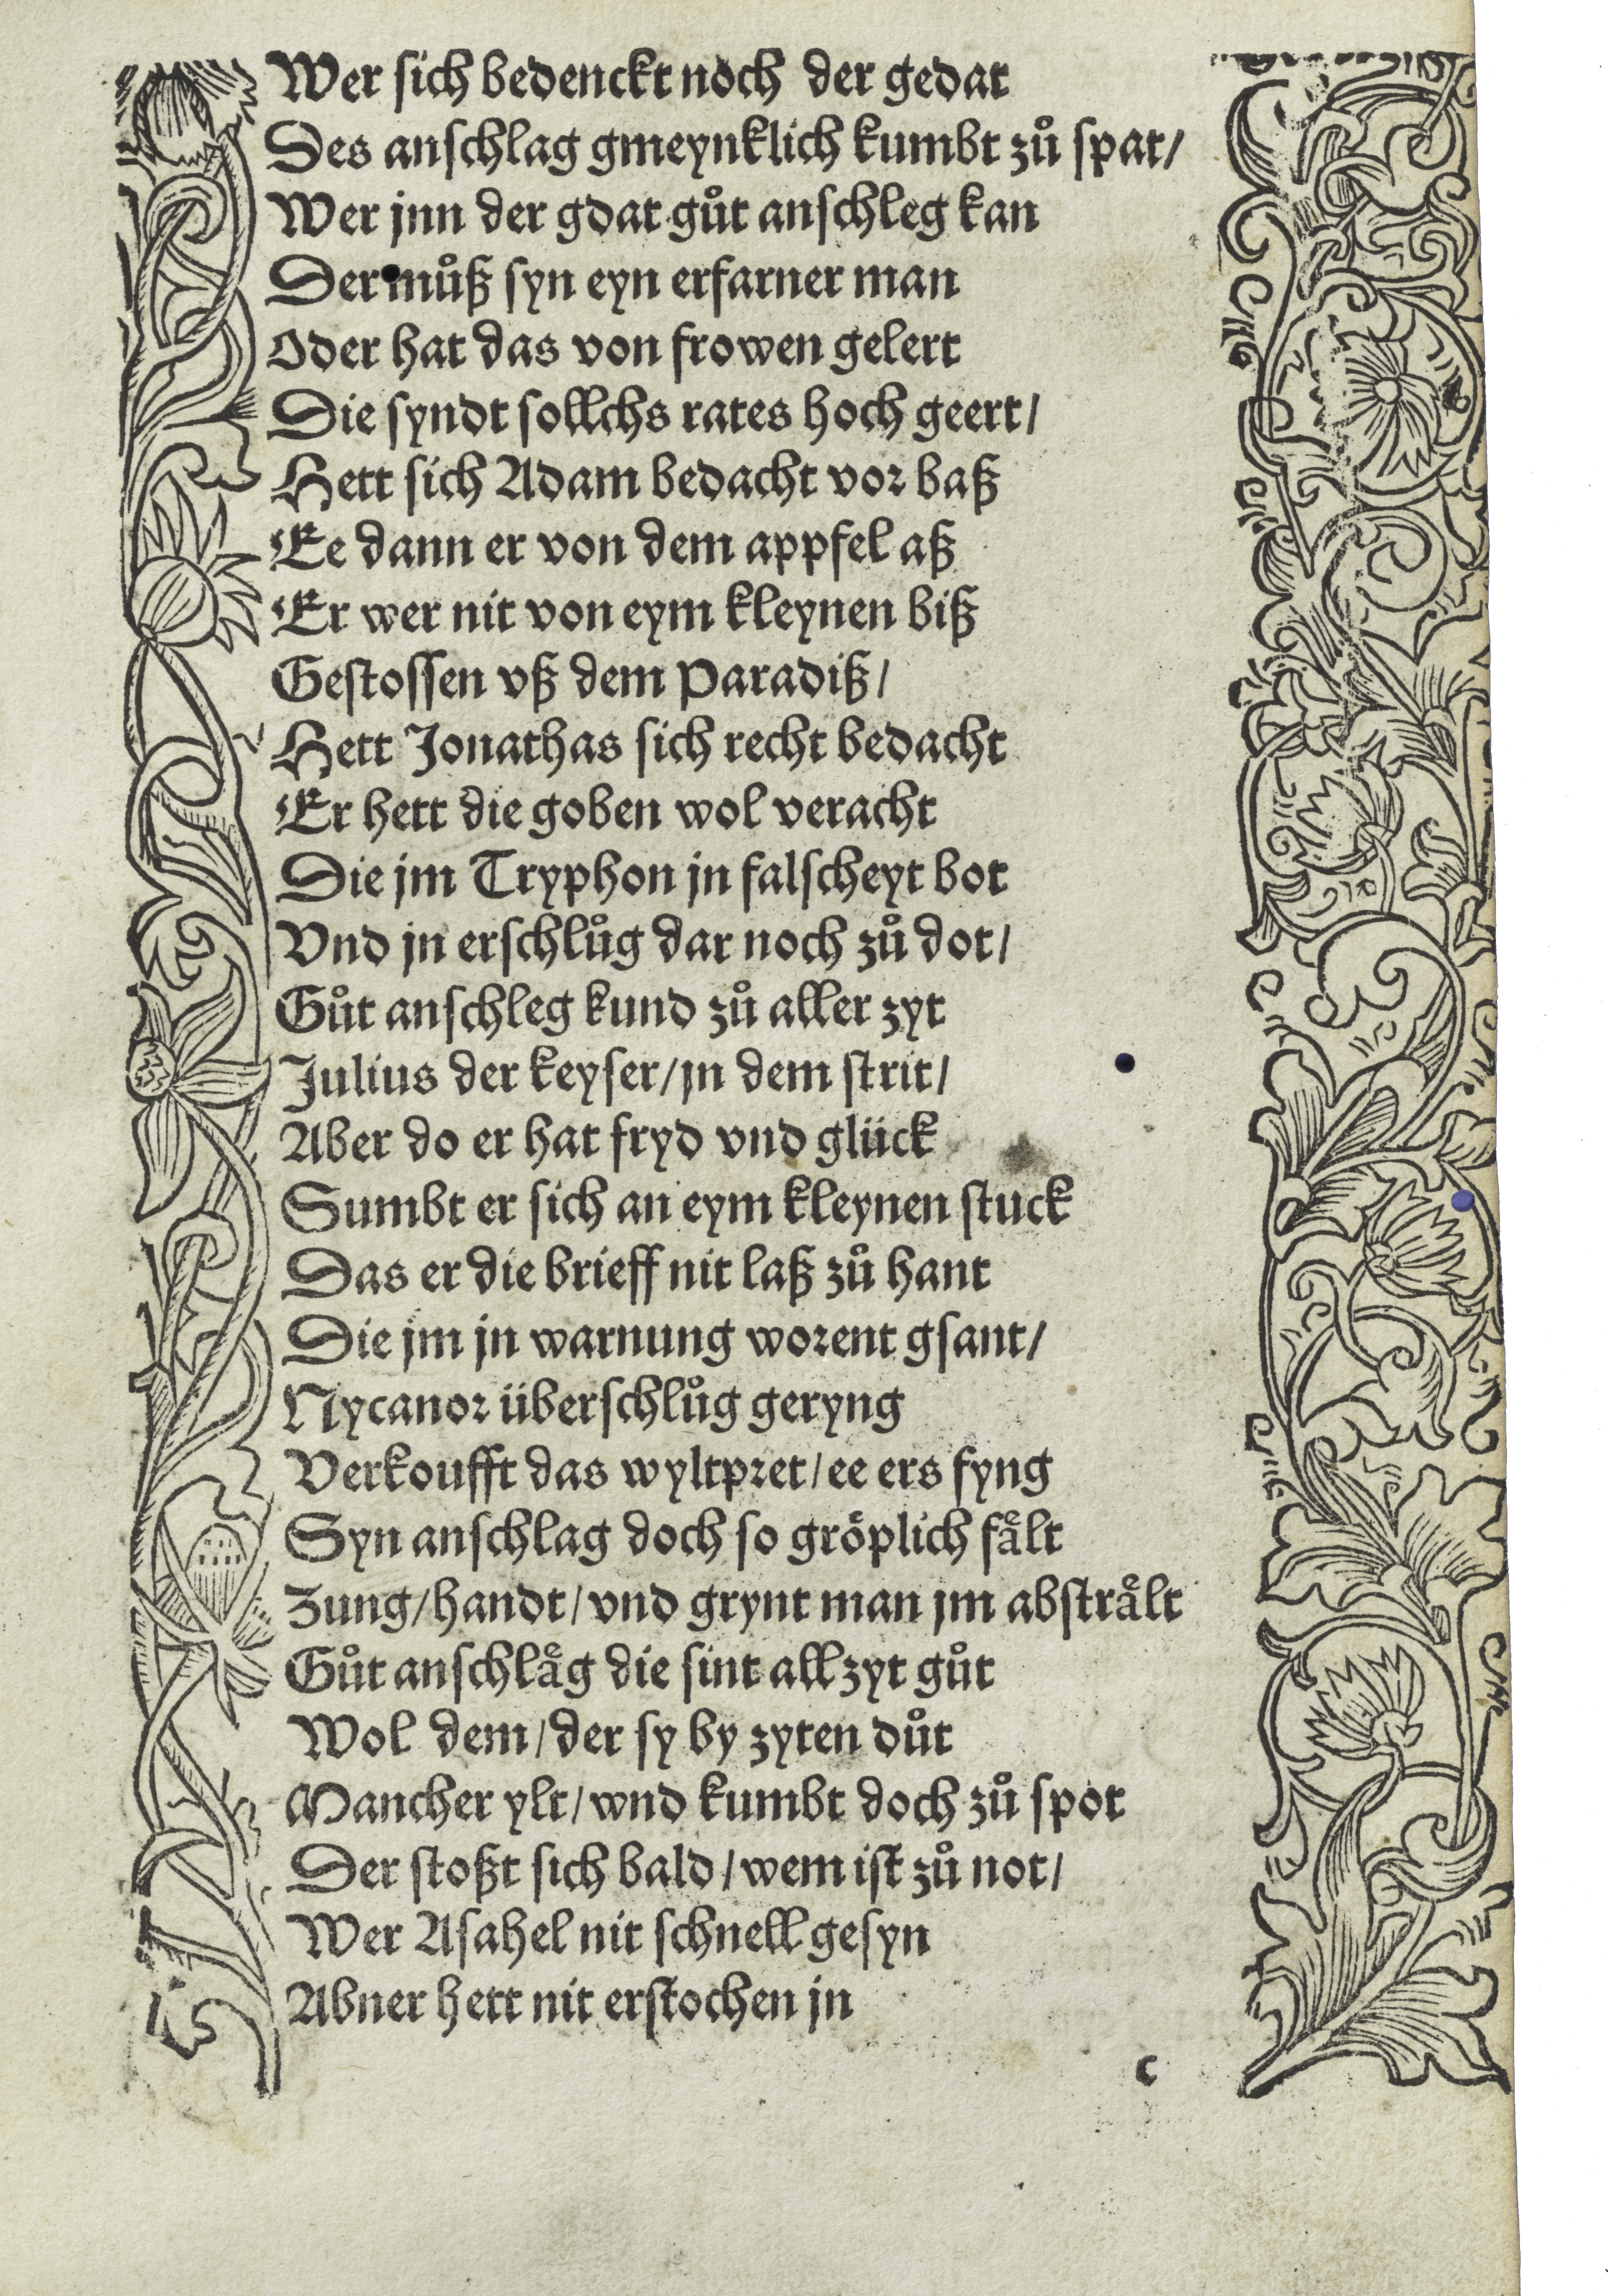 Wer sich bedenckt noch der gedat
Des anschlag gmeynklich kumbt zuͦ spat/
Wer jnn der gdat guͦt anschleg kan
Der muͦß syn eyn erfarner man
Oder hat das von frowen gelert
Die syndt sollchs rates hoch geert/
Hett sich Adam bedacht vor baß
Ee dann er von dem appfel aß
Er wer nit von eym kleynen biß
Gestossen vß dem Paradiß/
Hett Jonathas sich recht bedacht
Er hett die goben wol veracht
Die jm Tryphon jn falscheyt bot
Vnd jn erschluͦg dar noch zuͦ dot/
Guͦt anschleg kund zuͦ aller zyt
Julius der keyser/jn dem strit/
Aber do er hat fryd vnd glück
Sumbt er sich an eym kleynen stuck
Das er die brieff nit laß zuͦ hant
Die jm jn warnung worent gsant/
Nycanor überschluͦg geryng
Verkoufft das wyltpret/ee ers fyng
Syn anschlag doch so groͤplich faͤlt
Zung/handt/vnd grynt man jm abstraͤlt
Guͦt anschlaͤg die sint all zyt guͦt
Wol dem/der sy by zyten duͦt
Mancher ylt/wnd kumbt doch zuͦ spot
Der stoßt sich bald/wem ist zuͦ not/
Wer Asahel nit schnell gesyn
Abner hett nit erstochen jn
c